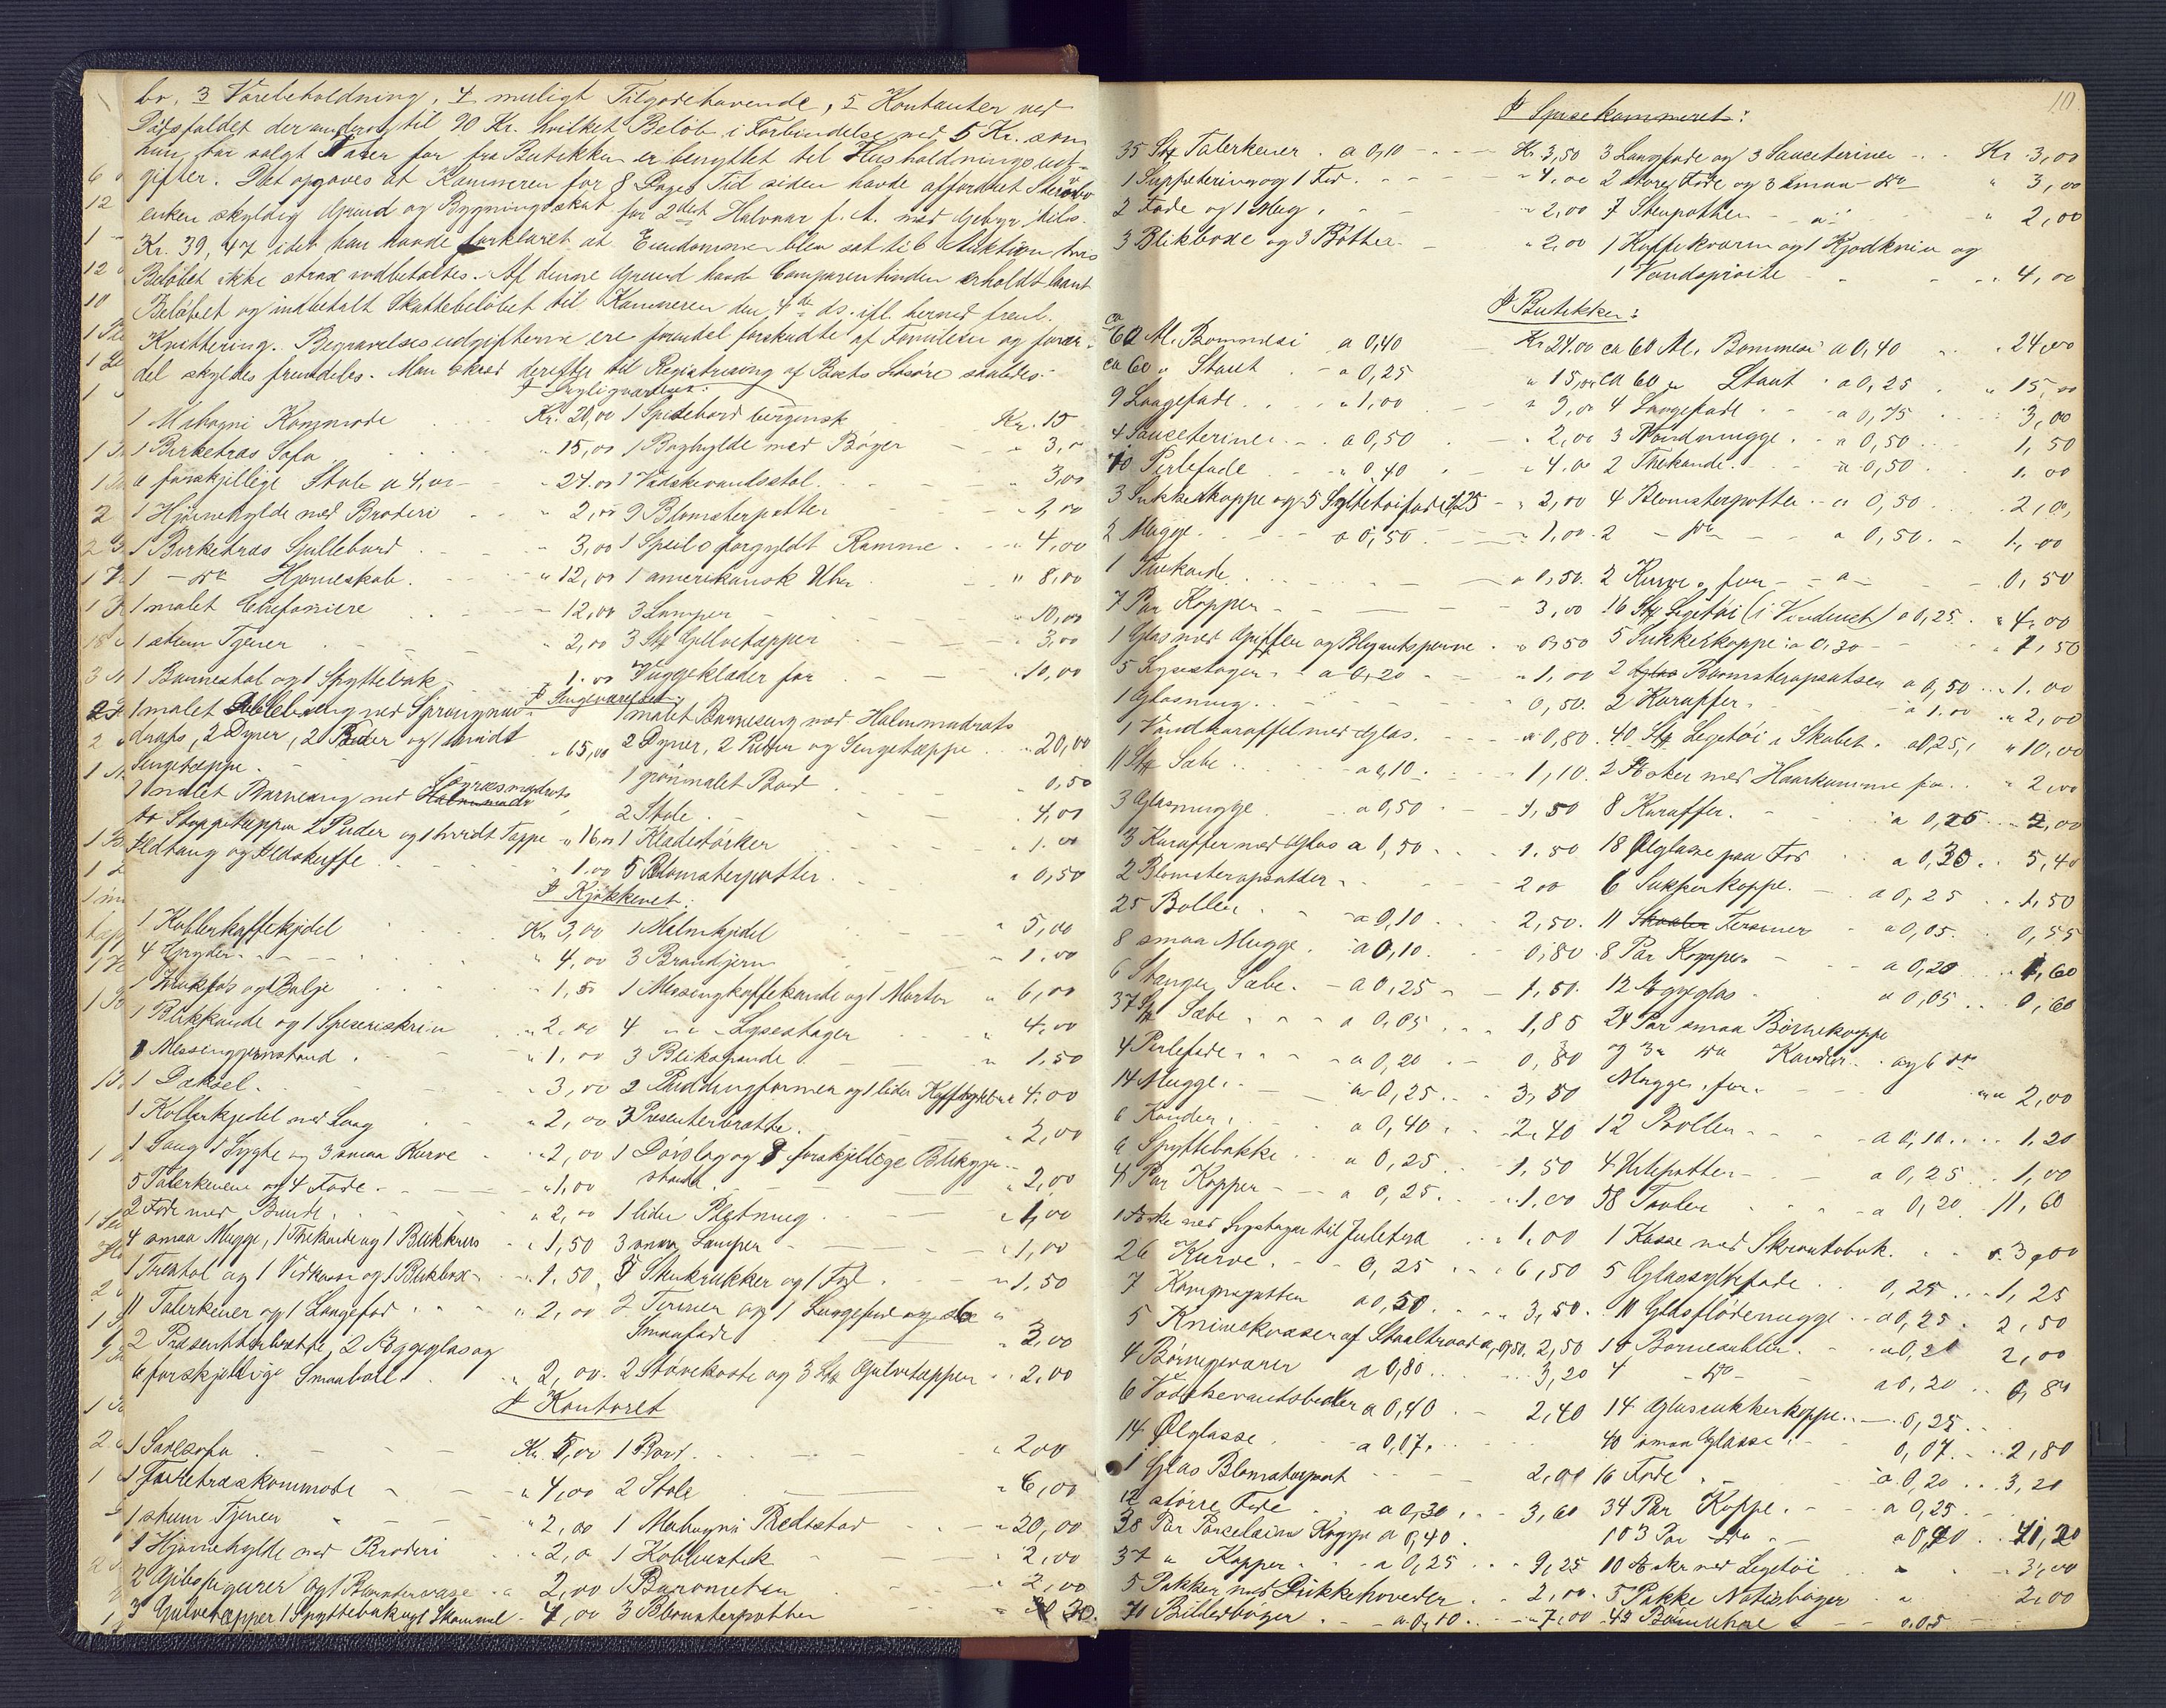 bo, 3 Varebeholdning, 4 muligt Tilgodehavende, 5 Kontanter ved
Dødsfaldet der androg til 90 Kr. hvilket Beløb i Forbindelse med 5 Kr. som
hun har solgt Varer for fra Butikken er benyttet til Husholdningsud-
gifter. Det opgaves at Kæmneren for 8 Dages Tid siden havde affordret
enken skyldig Grund og Bygningsskat for 2det Halvaar f. A. med Gebyr tils.
Kr. 39,47 idet han havde forklaret at Eiendommen blev sat til Auktion hvis
Beløbet ikke strax indbetaltes. Af denne Grund havde Comparentinden erholdt laant
Beløbet og indbetalt Skattebeløbet til Kæmneren den 4de ds. ifl. herved freml.
Kvittering. Begravelsesudgifterne ere forendel forskudte af Familien og foren-
del skyldes fremdeles. Man skred derefter til Registrering af Boets Løsøre saaledes:
I Dagligværelset:
1 Mahogni Kommode Kr. 20,00 1 Spisebord bergensk Kr. 15
1 Birketræs Sofa 15,00 1 Boghylde med Bøger 3,00
6 forskjellige Stole a 4,00 24.00 1 Vadskevandsstol 3,00
1 Hjørnehylde med Broderi 2,00 9 Blomsterpotter 2,00
1 Birketræs Spillebord 3,00 1 Speil i forgyldt Ramme 4,00
1 - do Hjørneskab 12,00 1 amerikansk Uhr 8,00
1 malet Chefoniere 12,00 3 Lamper 10,00
1 stum Tjener 2,00 3 Stk Gulvetæpper 3,00
1 Barnestol og 1 Spyttebak 1.00 Væggeklæder for 10,00
I Sengeværelset:
1 malet Dobbeltseng med Springma- 1 malet Barneseng med Halmmadrats
drats, 2 Dyner, 2 Puder og 1 hvidt 65,00 2 Dyner, 2 Puder og Sengetæppe 20,00
Sengetæppe. 1 grønmalet Bord 0,50
1 malet Barneseng med Søgræsmadrats 2 Stole 4,00
to Stoppetæpper 2 Puder og 1 hvidt Tæppe 16.00 1 Klædestørker 1.00
Ildtang og Ildskuffe 1.00 5 Blomsterpotter 0,50
I Kjøkkenet:
1 Kobberkaffekjedel Kr 3,00 1 Malmkjedel 5,00
4 Gryder 4,00 3 Brandjern 1.00
1 og 1 Balje 1,50 1 Messingkaffekande og 1 Morter 6,00
1 Blikkande og 1 Speseriskrin 2.00 4 Lysestager 4.00
1 Messinggjenstand 1.00 3 Blikspande 1.50
1 Dæksel 3,00 2 Puddingformer og 1 liden Kaffekjedel 4.00
1 Kobberkjedel med Laag 2,00 3 Presenterbrætte 2,00
1 Saug 1 Lygte og 3 smaa Kurve 2,00 1 Dørslag og 8 forskjellige Blikgjen-
5 Talerkener og 4 Fade 1.00 stande 2,00
2 Fade med Bunde 2,00 1 liden Pletmug 1,00
4 smaa Mugge, 1 Thekande og 1 Blikkrus 1,50 3 smaa Lamper 1,00
1 Træstol og 1 Vedkasse og 1 Blikboks 1.50 5 Stenkrukker og 1 Fad 1,50
11 Talerkener og 1 Langefad 2,00 2 Teriner og 1 Langefad og 6
2 Præsenterbrætte, 2 Æggeglas og Smaafade 3,00
6 forskjellige Smaaboll 2,00 2 Støvekoste og 3 Stk Gulvetæpper 2.00
I Kontoret
1 Sovesofa Kr. 5,00 1 Bord 2,00
1 Furetræskommode 4,00 2 Stole 6,00
1 stum Tjener 2,00 1 Mahogni Piedestad 20,00
1 Hjørnehylde med Broderi 2,00 1 Kobberstik 2,00
2 Gibsfigurer og 1 Blomstervase 2,00 1 Barometer 2,00
3 Gulvetæpper 1 Spyttebak og 1 Skammel 4,00 3 Blomsterpotter 30
10.
I Spisekammeret:
35 Stk Talerkener a 0,10 Kr. 3,50 3 Langfade og 3 Sauceteriner Kr 3,00
1 Suppeterin og 1 Fad 4,00 2 store Fade og 3 smaa do 3,00
2 Fade og 1 Mug 2,00 7 Stenpotter 2,00
3 Blikboxe og 3 Bøtter 2,00 1 Kaffekværn og 1 Kjødkniv og
1 Vandsprøite 4,00
I Butikken:
ca 60 Al. Bommesi a 0,40 Kr 24.00 ca 60 Al. Bommesi a 0,40 24,00
ca 60 " Stout a 0,25 15,00 ca 60 " Stout a 0,25 15,00
9 Langefade 1,00 9,00 4 Langefade a 0,75 3,00
4 Sauceteriner a 0,50 2,00 3 Vandmugge a 0,50 1,50
10 Perlefade 0,40 4.00 2 Thekande a 0,50 1.00
3 Sukkerkoppe og 5 Syltetøifade 0,25 2,00 4 Blomsterpotter a 0,50 2,00
2 Mugge a 0,50 1,00 2 do a 0,50 1,00
1 Thekande a 0,50 2 Kurve for 0,50
7 Par Kopper 3,00 16 Stk Legetøi (i Vinduet) a 0,25 4,00
1 Glas med Grifler og Blyantspenne 0,50 5 Sukkerkoppe a 0,30 1,50
5 Lysestager a 0,20 1,00 2 Blomsteropsatser a 0,50 1.00
1 Glasmug 0,50 2 Karafler a 1.00 2,00
1 Vandkaraffel med Glas 0,80 40 Stk Legetøi i Skabet a 0,25 10,00
11 Stk Sæbe a 0,10 1,10 2 Æsker med Haarkamme for 2,00
3 Glasmugge a 0,50 1,50 8 Karafler a 0,25 2,00
3 Karafler med Glas a 0,50 1.50 18 Ølglasse paa Fod a 0,30 5,40
2 Blomsteropsatser 2.00 6 Sukkerkoppe a 0,25 1,50
25 Boller a 0,10 2,50 11 Skaaler a 0,05 0,55
8 smaa Mugge a 0,10 0,80 8 Par Kopper a 0,20 1,60
6 Stænger Sæbe a 0,25 1,50 12 Æggeglas a 0,05 0,60
37 Stk Sæbe a 0,05 1,85 24 Par smaa Børnekoppe
4 Perlefade a 0,20 0,80 og 3 do Kander og 6 do
14 Mugge a 0,25 3,50 Mugge for 2,00
6 Kander a 0,40 2,40 12 Boller a 0,10 1.20
6 Spyttebakke a 0,25 1,50 4 Urtepotter a 0,25 1,00
4 Par Kopper a 0,25 1.00 58 Tavler a 0,20 11,60
1 Æske med Lysstager til Juletræ 1.00 1 Kasse med Skrautobak 3,00
26 Kurve 0,25 6,50 5 Glassyltefade 0,25 1,25
7 a 0,50 3,50 10 Glasflødemugge a 0,25 2,50
5 Knivekvaser af Staaltraad a 0,50 2,50 10 a 0,20 2,00
4 Børnegeværer a 0,80 3,20 4 do a 0,20 0,80
6 a 0,40 2,40 14 Glassukkerkoppe 0,25
14 Ølglasse a 0,07 40 smaa Glasse 0,07 2,80
1 Glas Blomsteropsat 2,00 16 Fade a 0,20 3,20
12 større Fade a 0,30 3,60 34 Par Koppe a 0,25
38 Par Porcelæins Koppe a 0,40 103 Par do a 0,40 41,20
37 " Kopper a 0,25 9,25 10 Æsker med Legetøi 3,00
5 Pakker med Dukkehoveder 2,00 5 Pakke Notisbøger 2,00
70 Billedbøger a 0,10 7,00 49 0.05